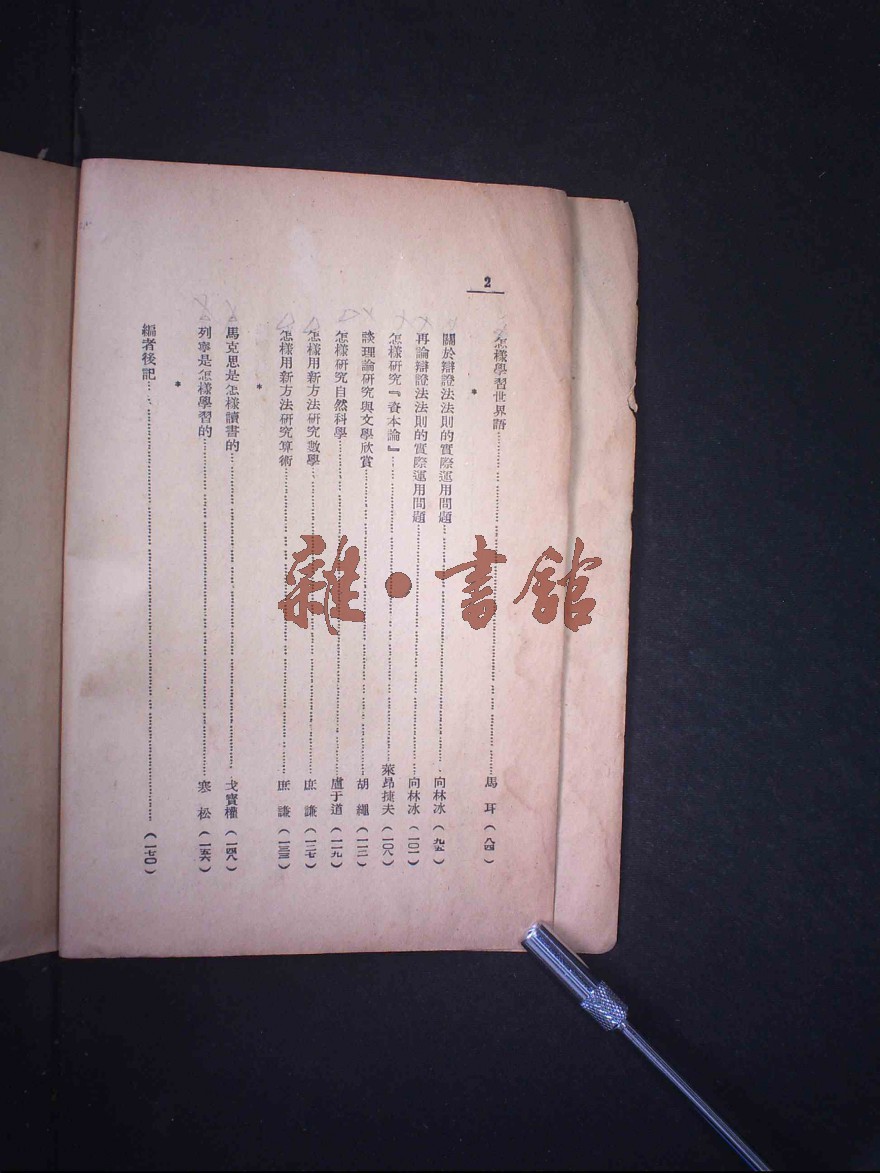 2
怎樣學習世界語……馬耳(八四)
*
關於辯證法法則的實際運用問題……向林冰(九五)
再論辯證法法則的實際運用問題……向林冰(一〇一)
怎樣研究『資本論』……萊昂捷夫(一〇八)
談理論研究與文學欣賞……胡繩(一一二)
怎樣研究自然科學……盧于道(一一九)
怎樣用新方法研究數學……庶謙(一二七)
怎樣用新方法研究算術……庶謙(一三三)
*
馬克思是怎樣讀書的……戈寶權(一四八)
列寧是怎樣學習的……寒松(一五六)
*
編者後記……(一七〇)
雜·書館